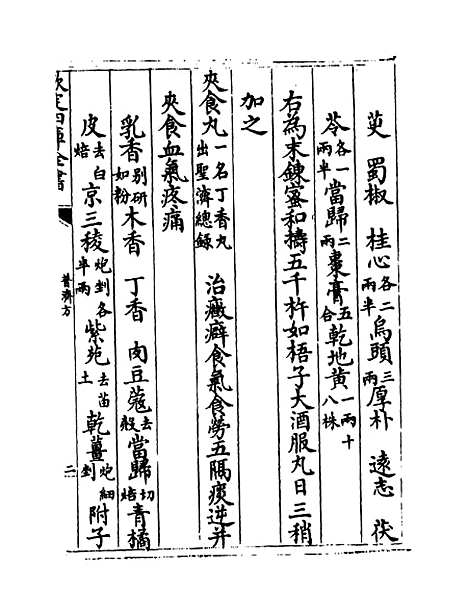 萸　蜀椒　桂心各二兩半烏頭三兩厚朴　遠志　茯
苓各一兩半當歸二兩棗膏五合乾地黄一兩十八株
右為末鍊蜜和擣五千杵如梧子大酒服丸日三稍
加之
夾食丸一名丁香丸出聖濟總錄　治癥癖食氣食勞五隔痰逆并
夾食血氣疼痛
乳香别研如粉木香　丁香　肉豆蔻去殼當歸切焙青橘
皮去白焙京三稜炮剉各半兩紫菀去苗土乾薑炮細剉附子
欽定四庫全書
普濟方
二